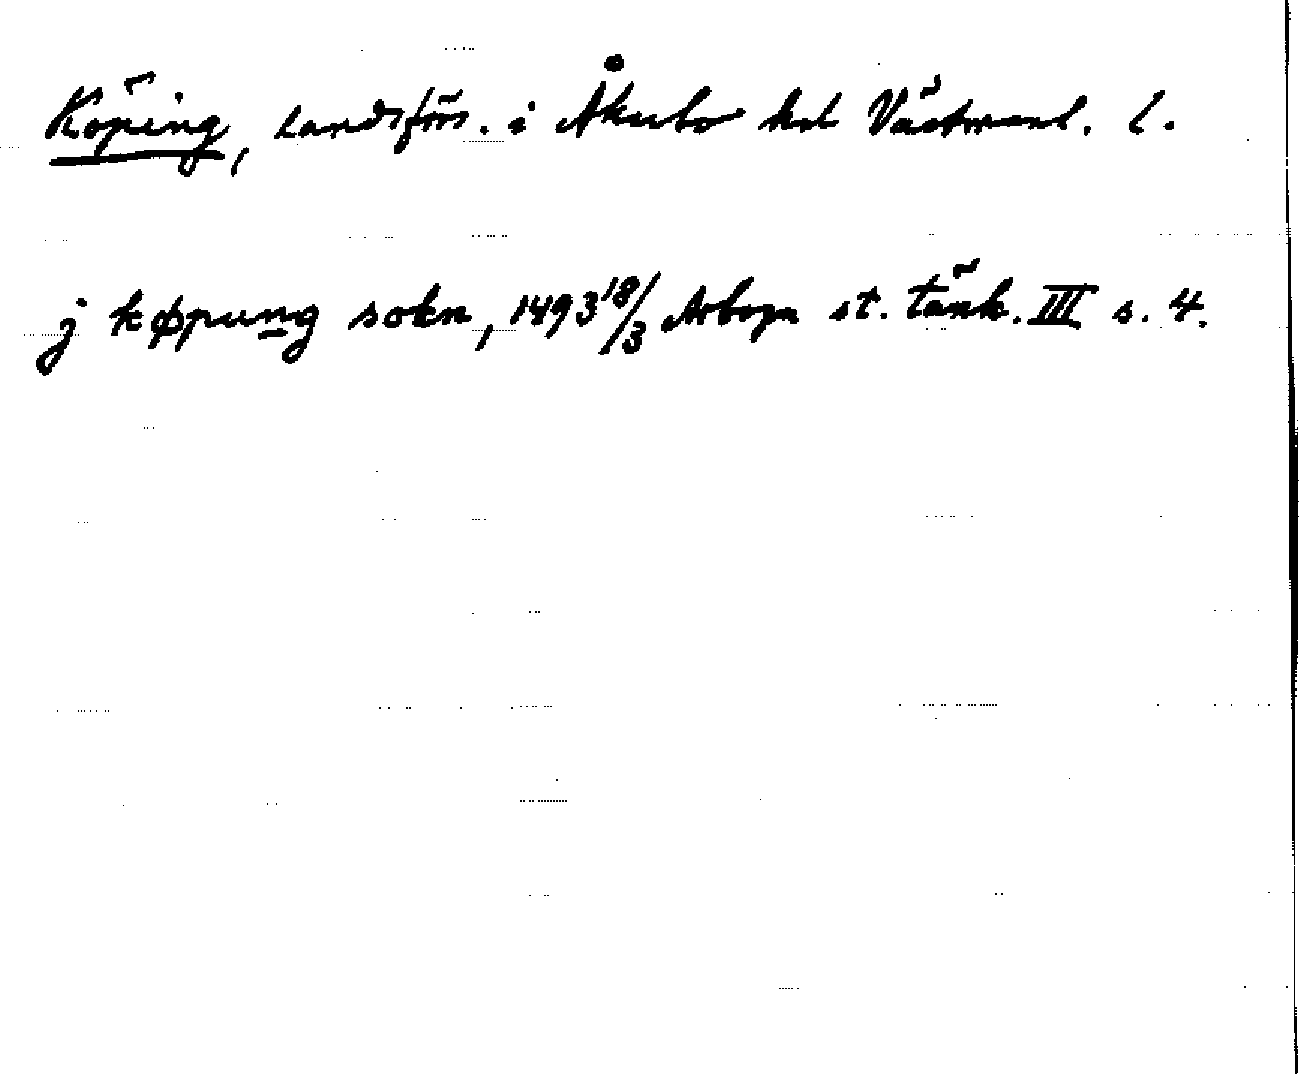 Köping, landsförs. i Åkerbo hd Västmanl. l.
j køpung sokn, 1493 18/3 Arboga st. tänk. III s. 4.